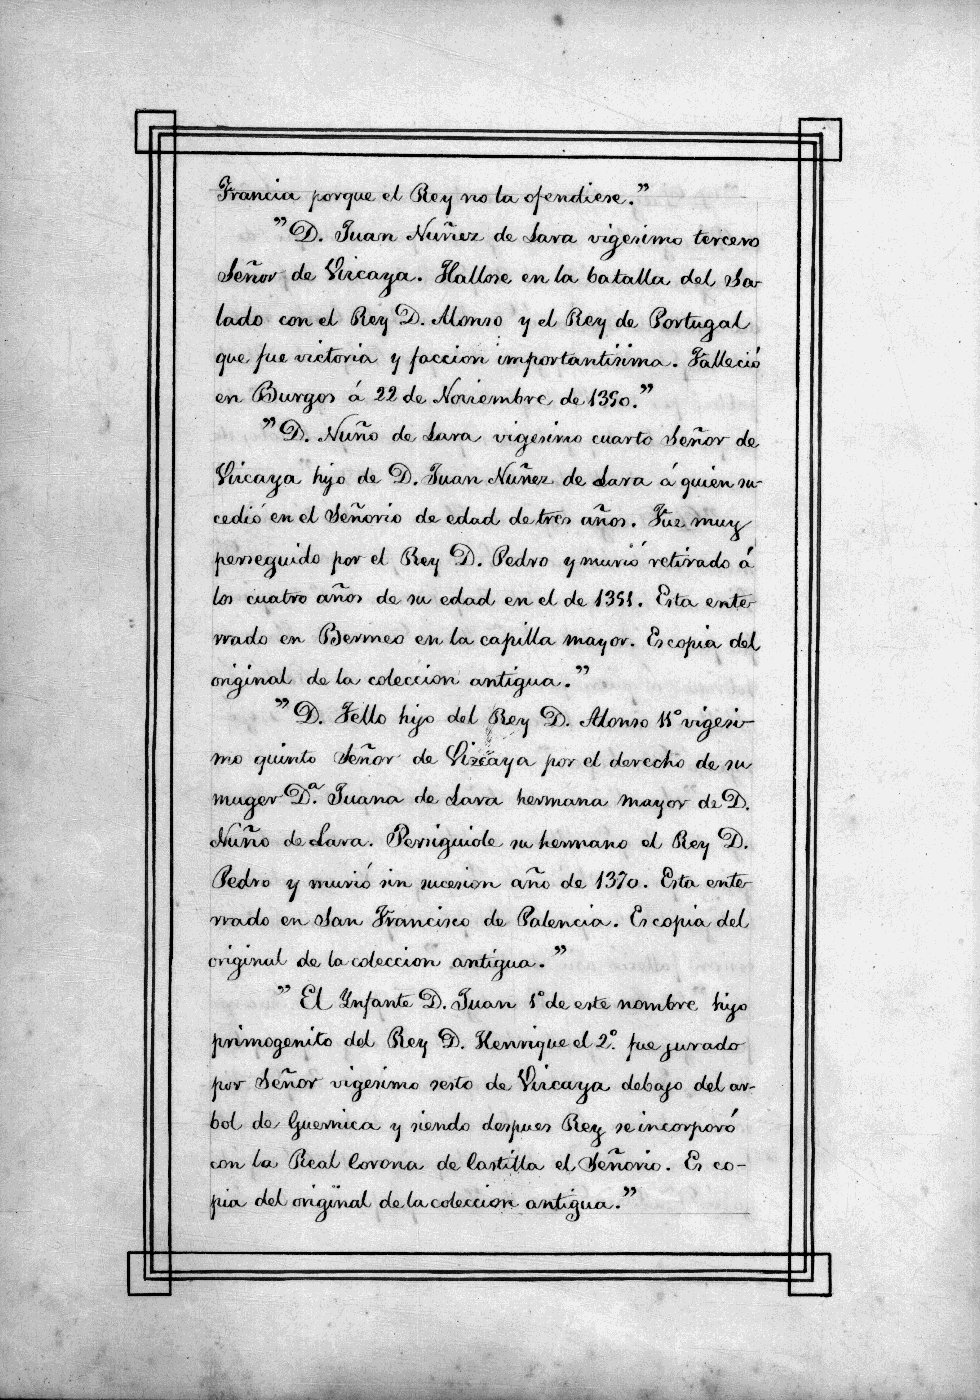 Francia porque el Rey no la ofendiese."
"D. Juan Nuñez de Lara vigesimo tercero
Señor de Vizcaya. Hallose en la batalla del Sa-
lado con el Rey D. Alonso y el Rey de Portugal
que fue victoria y faccion importantisima. Falleció
en Burgos á 22 de Noviembre de 1350."
"D. Nuño de Lara vigesimo cuarto Señor de
Vizcaya hijo de D. Juan Nuñez de Lara á quien su-
cedió en el Señorio de edad de tres años. Fue muy
perseguido por el Rey D. Pedro y murió retirado á
los cuatro años de su edad en el de 1351. Esta ente-
rrado en Bermeo en la capilla mayor. Es copia del
original de la coleccion antigua."
"D. Tello hijo del Rey D. Alonso 11º vigesi-
mo quinto Señor de Vizcaya por el derecho de su
muger Dª. Juana de Lara hermana mayor de D.
Nuño de Lara. Persiguiole su hermano el Rey D.
Pedro y murió sin sucesion año de 1370. Esta ente-
rrado en San Francisco de Palencia. Es copia del
original de la coleccion antigua."
"El Ynfante D. Juan 1º de este nombre hijo
primogenito del Rey D. Henrique el 2º. fue jurado
por Señor vigesimo sesto de Vizcaya debajo del ar-
bol de Guernica y siendo despues Rey se incorporó
con la Real Corona de Castilla el Señorio. Es co-
pia del original de la coleccion antigua."